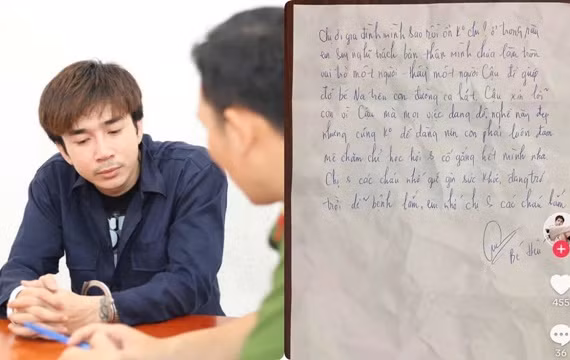 Chị ơi gia đình mình sao rồi ổn ko chị? ở trong này
em suy nghĩ trách bản thân mình chưa làm tròn
vai trò một người thầy một người Cậu để giúp
đỡ bé Na trên con đường ca hát Cậu xin lỗi
con vì Cậu mà mọi việc dang dở, nghề này đẹp
nhưng cũng ko dễ dàng nin con phải luôn đam
mê chăm chỉ học hỏi & cố gắng hết mình nha
Chị & các cháu nhớ giữ gìn sức khỏe, đang trở
trời dễ bệnh lắm, em nhớ chị & các cháu lắm
Bé
455
36